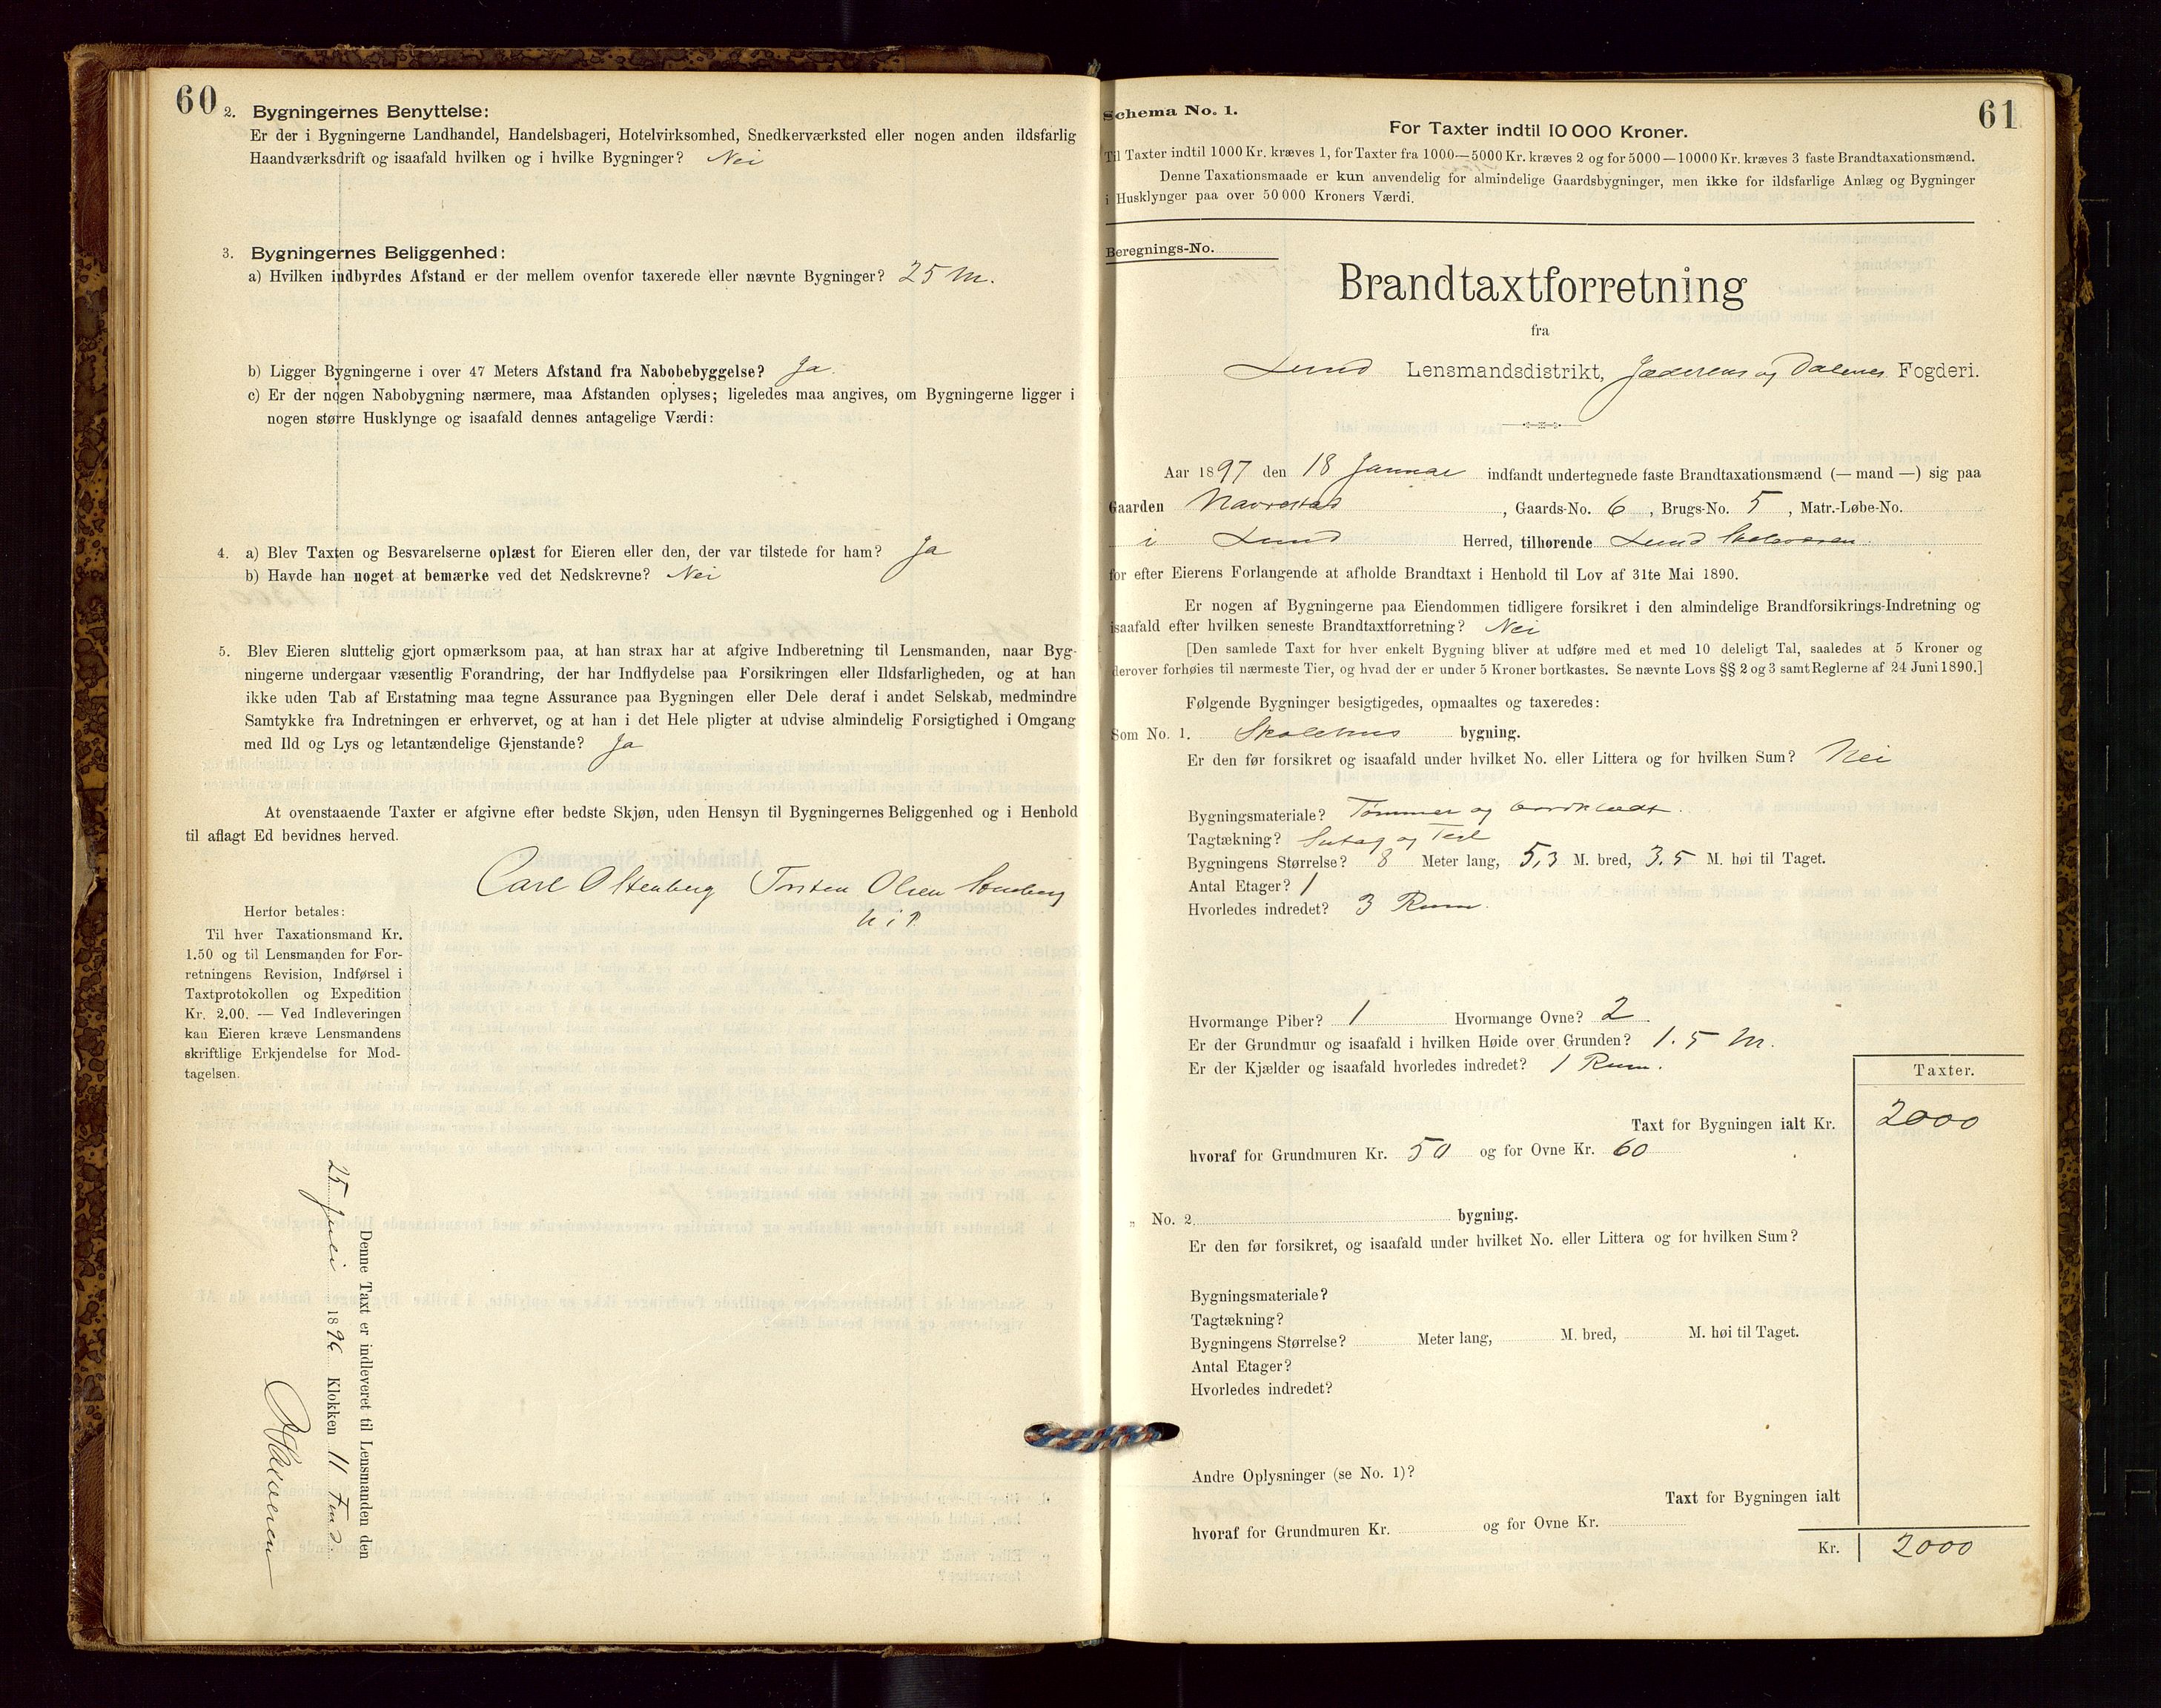 60
2. Bygningernes Benyttelse:
Er der i Bygningerne Landhandel, Handelsbageri, Hotelvirksomhed, Snedkerværksted eller nogen anden ildsfarlig
Haandværksdrift og isaafald hvilken og i hvilke Bygninger? Nei
3. Bygningernes Beliggenhed:
a) Hvilken indbyrdes Afstand er der mellem ovenfor taxerede eller nævnte Bygninger? 25 M.
b) Ligger Bygningerne i over 47 Meters Afstand fra Nabobebyggelse? Ja.
c) Er der nogen Nabobygning nærmere, maa Afstanden oplyses; ligeledes maa angives, om Bygningerne ligger i
nogen større Husklynge og isaafald dennes antagelige Værdi:
4. a) Blev Taxten og Besvarelserne oplæst for Eieren eller den, der var tilstede for ham? Ja
b) Havde han noget at bemærke ved det Nedskrevne? Nei
5. Blev Eieren sluttelig gjort opmærksom paa, at han strax har at afgive Indberetning til Lensmanden, naar Byg-
ningerne undergaar væsentlig Forandring, der har Indflydelse paa Forsikringen eller Ildsfarligheden, og at han
ikke uden Tab af Erstatning maa tegne Assurance paa Bygningen eller Dele deraf i andet Selskab, medmindre
Samtykke fra Indretningen er erhvervet, og at han i det Hele pligter at udvise almindelig Forsigtighed i Omgang
med Ild og Lys og letantændelige Gjenstande? Ja
At ovenstaaende Taxter er afgivne efter bedste Skjøn, uden Hensyn til Bygningernes Beliggenhed og i Henhold
til aflagt Ed bevidnes herved.
Carl Oltenberg Torsten Olsen
Herfor betales:
Til hver Taxationsmand Kr.
1.50 og til Lensmanden for For-
retningens Revision, Indførsel i
Taxtprotokollen og Expedition
Kr. 2.00. — Ved Indleveringen
kan Eieren kræve Lensmandens
skriftlige Erkjendelse for Mod-
tagelsen.
Denne Taxt er indleveret til Lensmanden den
25 Juni 1896 Klokken 11 Fm
61
Schema No. 1.
For Taxter indtil 10 000 Kroner.
Til Taxter indtil 1000 Kr. kræves 1, for Taxter fra 1000—5000 Kr. kræves 2 og for 5000—10000 Kr. kræves 3 faste Brandtaxationsmænd.
Denne Taxationsmaade er kun anvendelig for almindelige Gaardsbygninger, men ikke for ildsfarlige Anlæg og Bygninger
i Husklynger paa over 50 000 Kroners Værdi.
Beregnings-No.
Brandtaxtforretning
fra
Lund Lensmandsdistrikt, Jæderens og Dalenes Fogderi.
Aar 1897 den 18 Januar indfandt undertegnede faste Brandtaxationsmænd (— mand —) sig paa
Gaarden Navrestad, Gaards-No. 6, Brugs-No. 5, Matr.-Løbe-No.
i Lund Herred, tilhørende Lund Skolevæsen
for efter Eierens Forlangende at afholde Brandtaxt i Henhold til Lov af 31te Mai 1890.
Er nogen af Bygningerne paa Eiendommen tidligere forsikret i den almindelige Brandforsikrings-Indretning og
isaafald efter hvilken seneste Brandtaxtforretning? Nei
[Den samlede Taxt for hver enkelt Bygning bliver at udføre med et med 10 deleligt Tal, saaledes at 5 Kroner og
derover forhøies til nærmeste Tier, og hvad der er under 5 Kroner bortkastes. Se nævnte Lovs §§ 2 og 3 samt Reglerne af 24 Juni 1890.]
Følgende Bygninger besigtigedes, opmaaltes og taxeredes:
Som No. 1. Skolehus bygning.
Er den før forsikret og isaafald under hvilket No. eller Littera og for hvilken Sum? Nei
Bygningsmateriale? Tømmer og bordklædt
Tagtækning? Sutag og Teil
Bygningens Størrelse? 8 Meter lang, 5,3 M. bred, 3.5 M. høi til Taget.
Antal Etager? 1
Hvorledes indredet? 3 Rum.
Hvormange Piber? 1 Hvormange Ovne? 2
Er der Grundmur og isaafald i hvilken Høide over Grunden? 1.5 M.
Er der Kjælder og isaafald hvorledes indredet? 1 Rum.
Taxter.
Taxt for Bygningen ialt Kr. 2000
hvoraf for Grundmuren Kr. 50 og for Ovne Kr. 60
„ No. 2 bygning.
Er den før forsikret, og isaafald under hvilket No. eller Littera og for hvilken Sum?
Bygningsmateriale?
Tagtækning?
Bygningens Størrelse? Meter lang, M. bred, M. høi til Taget.
Antal Etager?
Hvorledes indredet?
Andre Oplysninger (se No. 1)?
Taxt for Bygningen ialt
hvoraf for Grundmuren Kr. og for Ovne Kr.
Kr. 2000